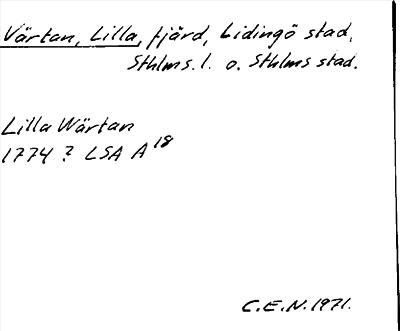 Värtan, Lilla, fjärd, Lidingö stad,
Sthlms. l. o. Sthlms stad.
Lilla Wärtan
1774 ? LSA A 18
C.E.N. 1971.